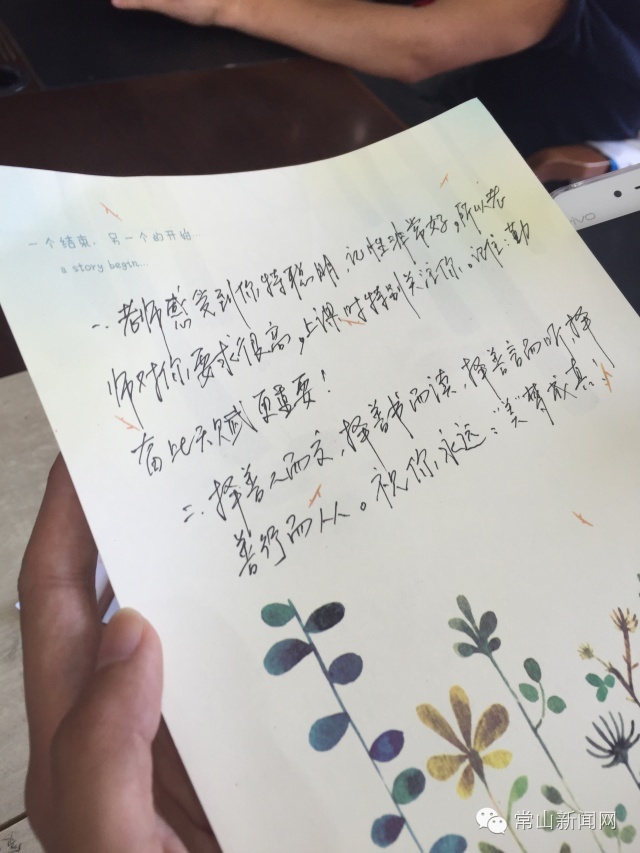 一个结束，另一个的开始...
a story begin...
一、老师感觉到你特聪明，记性非常好。所以老
师对你要求很高，上课时特别关注你。记住：勤
奋比天赋更重要！
二、择善人而交，择善书而读，择善言而听，择
善行而从。祝你永远："美"梦成真！
vivo
常山新闻网